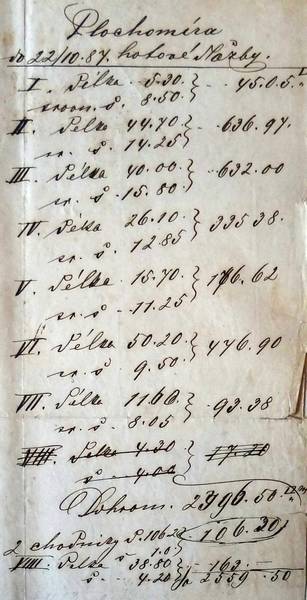 Plochomíra
do 22/10.87. hotové Dlažby.
I. Délka 5.30 } 45.05.
srovn. š. 8.50
II. Délka 44.70 } 636.97.
sr. š. 14.25
III. Délka 40.00 } 632.00
sr. š. 15.80
IV. Délka 26.10 } 335 38.
sr. š. 12.85
V. Délka 15.70 } 176.62
sr. š. 11.25
VI. Délka 50.20 } 476.90
sr. š. 9.50
VII. Délka 11.60 } 93.38
sr. š. 8.05
VIII. Délka 4.30 } 17.20
š. 4.00
Dohrom. 2396.50
2 chodníky D. 106.20 106.20
š. 1.0
VIII. Délka 38.80 163.
š. 4.20 2559.50